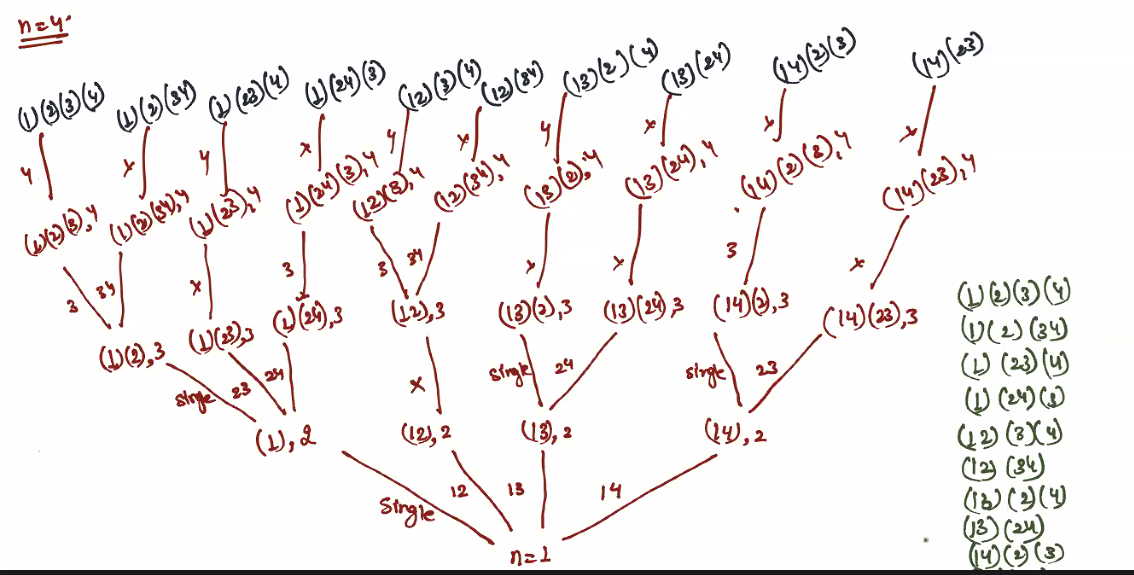 n=4
(1)(2)(3)(4) (1)(2)(34) (1)(23)(4) (1)(24)(3) (12)(3)(4) (12)(34) (13)(2)(4) (13)(24) (14)(2)(3) (14)(23)
4 x 4 x 4 x 4 x x x
(1)(2)(3),4 (1)(2)(34),4 (1)(23),4 (1)(24)(3),4 (12)(3),4 (12)(34),4 (13)(2),4 (13)(24),4 (14)(2)(3),4 (14)(23),4
3 34 x 3 3 34 x x 3 x
(1)(2),3 (1)(23),3 (1)(24),3 (12),3 (13)(2),3 (13)(24),3 (14)(2),3 (14)(23),3
single 23 24 x single 24 single 23
(1),2 (12),2 (13),2 (14),2
Single 12 13 14
n=1
(1)(2)(3)(4)
(1)(2)(34)
(1)(23)(4)
(1)(24)(3)
(12)(3)(4)
(12)(34)
(13)(2)(4)
(13)(24)
(14)(2)(3)